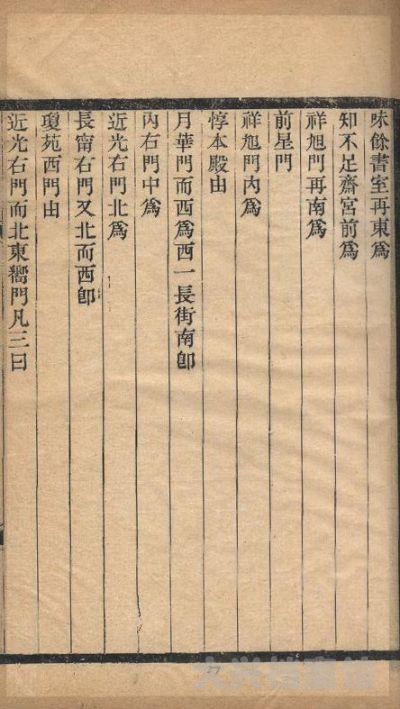 味餘書室再東爲
知不足齋宮前爲
祥旭門再南爲
前星門
祥旭門內爲
惇本殿由
月華門而西爲西一長街南卽
內右門中爲
近光右門北爲
長甯右門又北而西卽
瓊苑西門由
近光右門而北東嚮門凡三曰